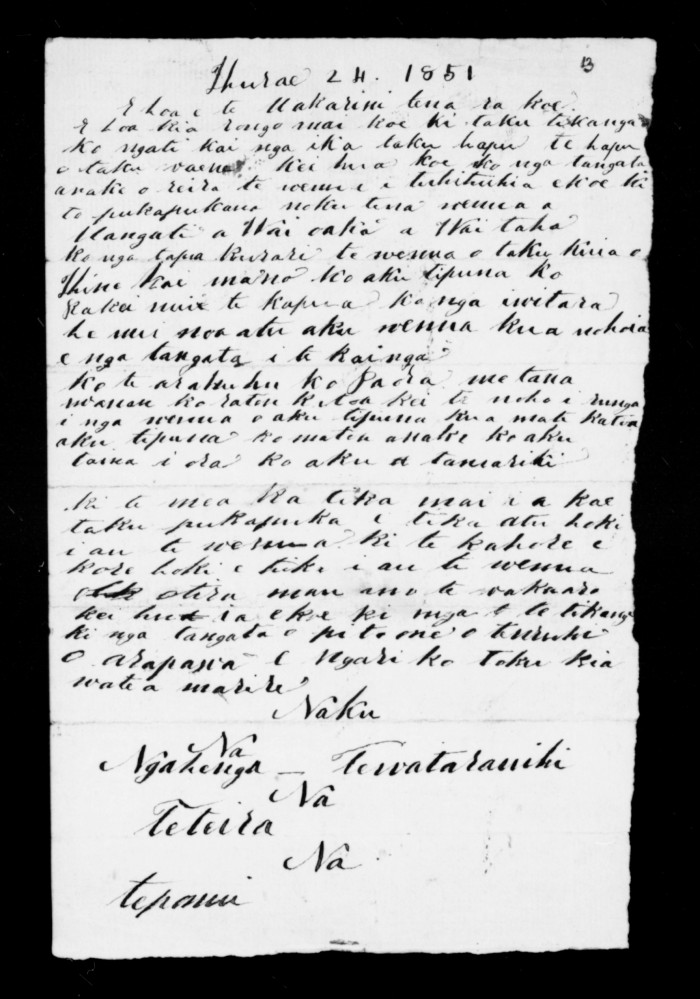 Hurae 24. 1851
13
E Hoa e te Makarini tena ra koe
E hoa kia rongo mai koe ki taku tikanga
ko ngati kai nga ika taku hapu te hapu
o taku vaena kei hua koe ko nga tangata
anake o reira te wenua i tuhituhia e koe ki
to pukapukana noku tena wenua a
Mangati a Wai oakā a Wai taha
ko nga tapua te wenua o taku kuia o
Hine kai mano ko aku tipuna ko
Rakei nui te kapua ko nga iwitara
he nui noa atu aku wenua kua nohoia
e nga tangata i te kainga
ko te arahuhu ko Paora me tana
ko kei te noho i runga
i nga wenua o aku tipuna kua mate katia
aku tipuna ko matou anake ko aku
taina i ora ko aku tamariki
ki te mea ka tika mai i a koe
taku pukapuka e tika atu hoki
i au te wenua ki te kahore e
kore hoki e tika i au te wenua
otira mau ano te wakaaro
kei hua ia ekoe ki nga te tikanga
ki nga tangata o pitoone o
o arapawa e ngari ko toku kia
watia marire
Naku
Na
Ngahenga – Tewataranihi
Na
Teteira
Na